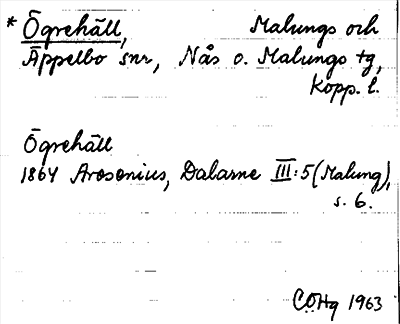 * Ögrehäll, Malungs och
Äppelbo snr, Nås o. Malungs tg,
Kopp. l.
Ögrehäll
1864 Arosenius, Dalarne III:5 (Malung),
s. 6.
CÖHg 1963